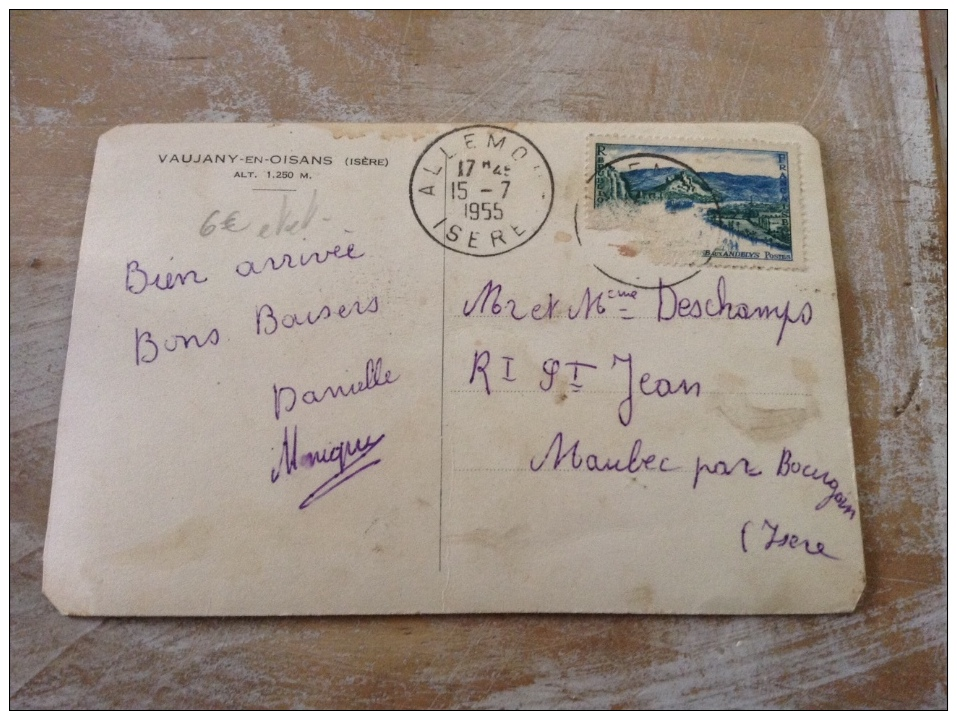 VAUJANY-EN-OISANS (ISÈRE)
ALT. 1.250 M.
6€
Bien arrivée
Bons Baisers
Danielle
Monique
ALLEMO
17 H 45
15 - 7
1955
ISERE
FRANCE
LES ANDELYS POSTES
Mr et Mme Deschamps
R I St Jean
Maubec par Bourgoin
(Isere